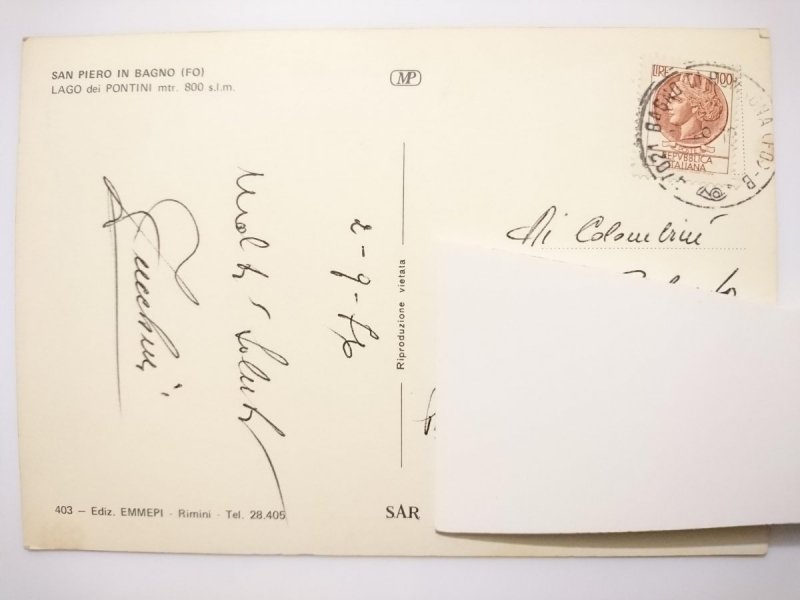 SAN PIERO IN BAGNO (FO)
LAGO dei PONTINI mtr. 800 s.l.m.
MP
LIRE 100
POSTE
REPVBBLICA
ITALIANA
47021 BAGNO
(FO) - B
Molti Saluti
2-9-76
Riproduzione vietata
Colombini
403 — Ediz. EMMEPI - Rimini - Tel. 28.405
SAR